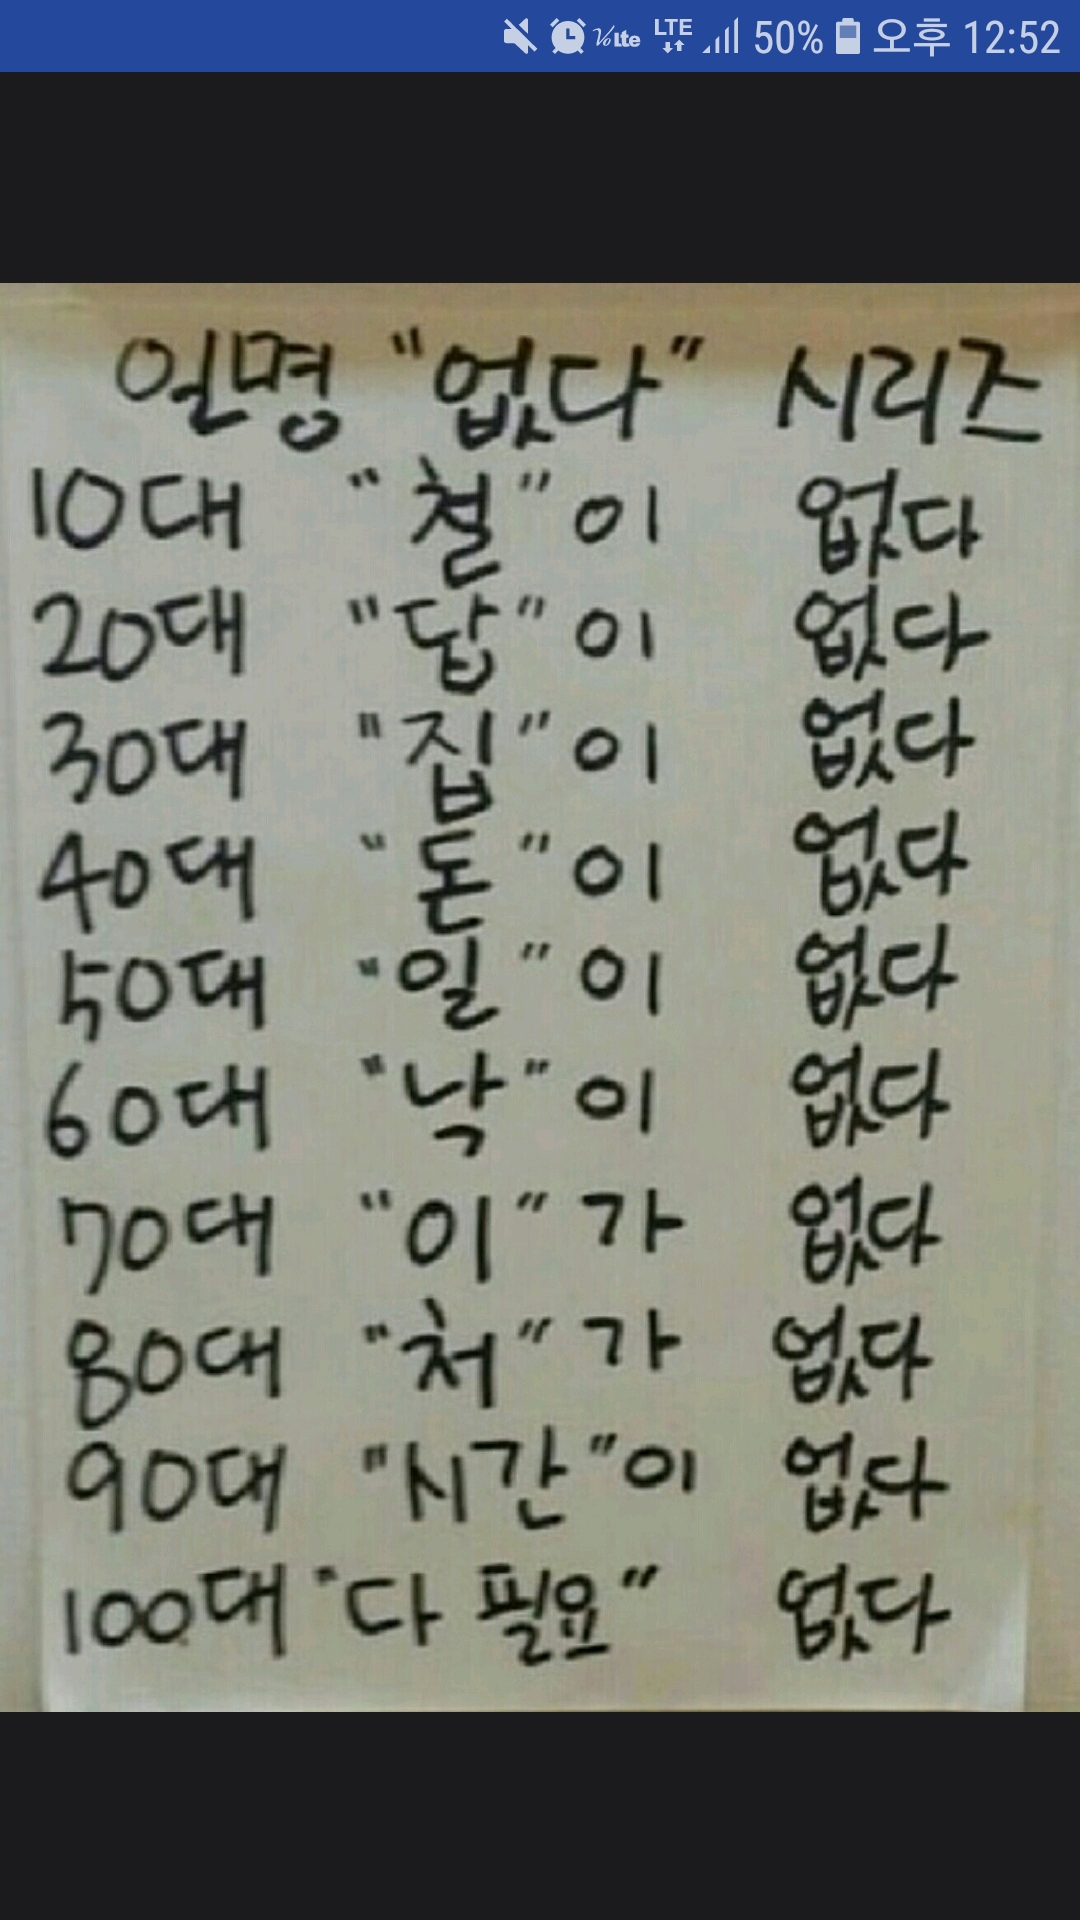 Volte LTE 50% 오후 12:52
일명 "없다" 시리즈
10대 "철"이 없다
20대 "답"이 없다
30대 "집"이 없다
40대 "돈"이 없다
50대 "일"이 없다
60대 "낙"이 없다
70대 "이"가 없다
80대 "처"가 없다
90대 "시간"이 없다
100대 "다 필요" 없다